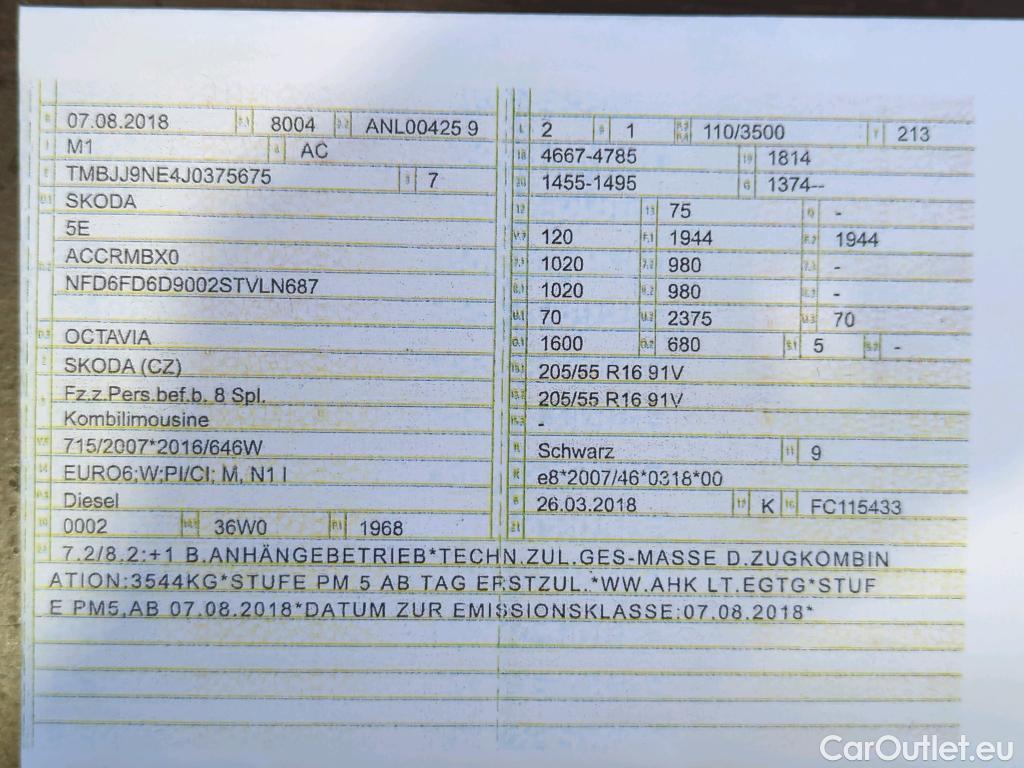 07.08.2018 8004 ANL00425 9
M1 AC
TMBJJ9NE4J0375675 7
SKODA
5E
ACCRMBX0
NFD6FD6D9002STVLN687
OCTAVIA
SKODA (CZ)
Fz.z.Pers.bef.b. 8 Spl.
Kombilimousine
715/2007*2016/646W
EURO6;W;PI/CI; M, N1 I
Diesel
0002 36W0 1968
L 2 9 1 P.2 P.4 110/3500 T 213
18 4667-4785 19 1814
20 1455-1495 G 1374--
12 13 75 Q -
V.7 120 F.1 1944 F.2 1944
7.1 1020 7.2 980 7.3 -
8.1 1020 8.2 980 8.3 -
U.1 70 U.2 2375 U.3 70
O.1 1600 O.2 680 S.1 5 S.2 -
15.1 205/55 R16 91V
15.2 205/55 R16 91V
15.3 -
R Schwarz 11 9
K e8*2007/46*0318*00
6 26.03.2018 17 K 16 FC115433
21
7.2/8.2:+1 B.ANHÄNGEBETRIEB*TECHN.ZUL.GES-MASSE D.ZUGKOMBIN
ATION:3544KG*STUFE PM 5 AB TAG ERSTZUL.*WW.AHK LT.EGTG*STUF
E PM5,AB 07.08.2018*DATUM ZUR EMISSIONSKLASSE:07.08.2018*
CarOutlet.eu